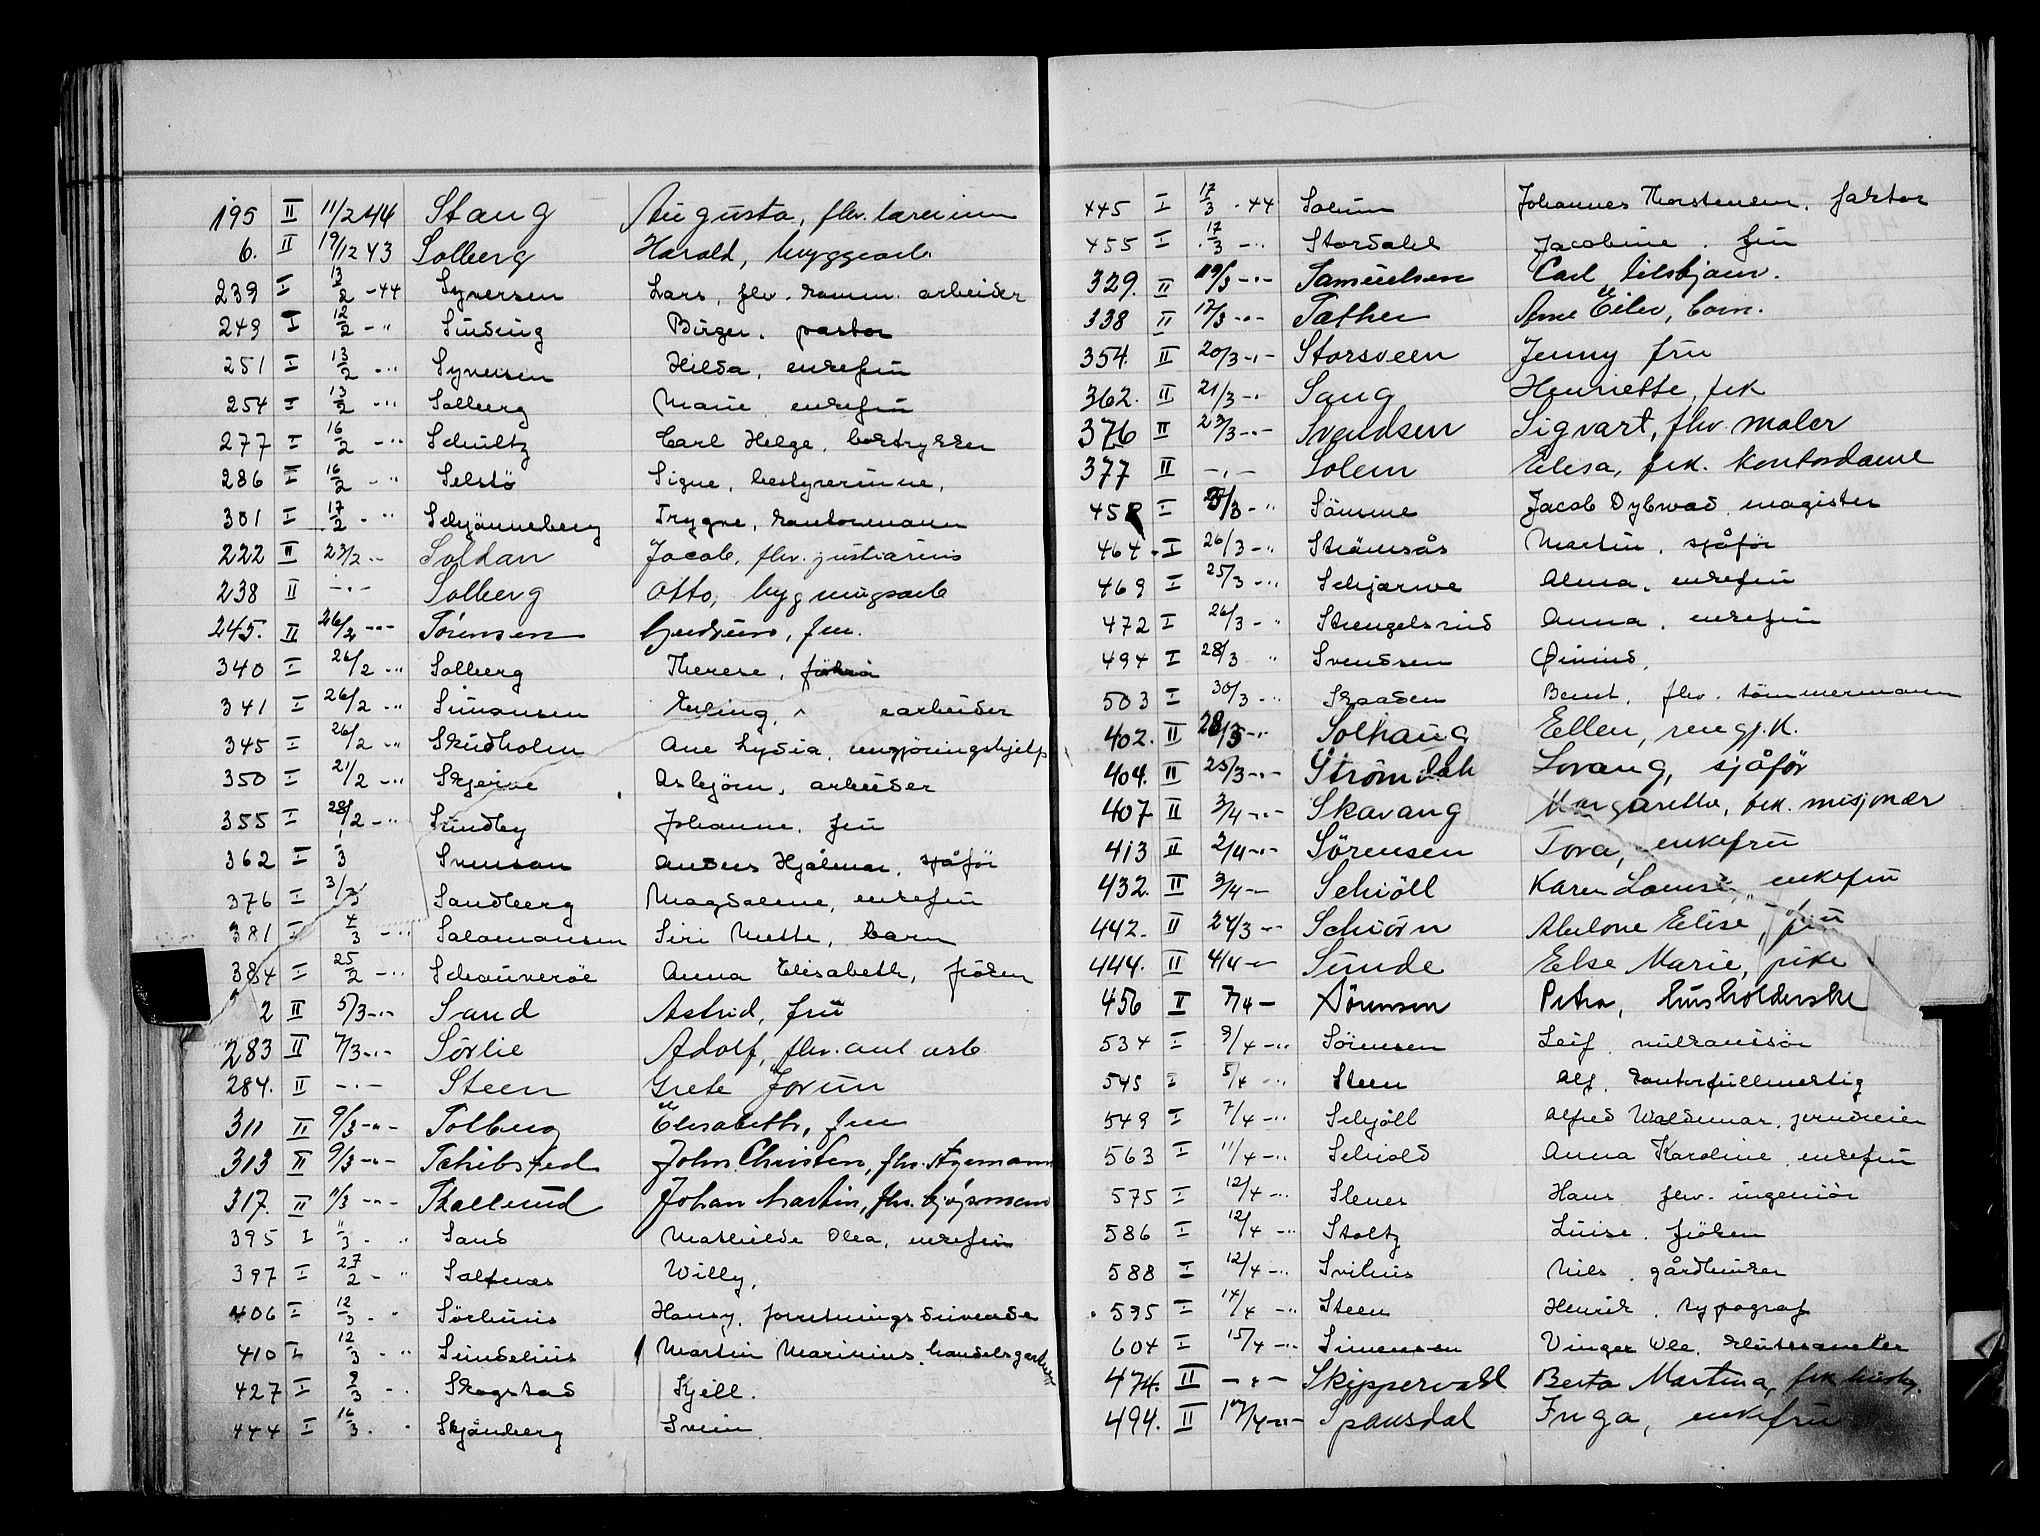 195 II 11/2 44 Stang Augusta, fhv. lærerinne
6. II 19/12 43 Solberg Harald, bryggearb.
239 I 13/2 -44 Syversen Lars, fhv. komm. arbeider
249 I 12/2 - " Sinding Birger, pastor
251 I 13/2 - " Syversen Hilda, enkefru
254 I 13/2 - " Solberg Marie, enkefru
277 I 16/2 - " Schultz Carl Helge, boktrykker
286 I 16/2 - " Selstö Signe, bestyrerinne,
301 I 17/2 - " Schjänneberg Trygve, kontormann
222 II 23/2 - Soldan Jacob, fhv. justiarius
238 II - " - Solberg Otto, bygningsarb
245. II 26/2 - " - Sørensen Gudrun, fru.
340 I 26/2 - " Solberg Therese, frk
341 I 26/2 - " Simonsen Erling, arbeider
345 I 26/2 - " Skudholm Ane Lydia, rengjøringshjelp
350 I 21/2 - " Skjerve Asbjörn, arbeider
355 I 28/2 - " Sundby Johanne, fru
362 I 1/3 Svenson Anders Hjalmar, sjåför
376 I 3/3 Sandberg Magdalene, enkefru
381 I 4/3 - " Salomonsen Siri Mette, barn
384 I 25/2 - " Schanveröe Anna Elisabeth, fröken
2 II 5/3 - " - Sand Astrid, fru
283 II 7/3 - " - Sörlie Adolf, fhv. anl. arb.
284. II - " - Steen Grete Jorun
311 II 9/3 - " - Solberg Elisabeth, fru
313 II 9/3 - " - Schibsted John Christen, fhv. styrmann
317. II 11/3 - " - Skollerud Johan Martin, fhv. sjøymann
395 I 11/3 - " Sand Mathilde Olea, enkefru
397 I 27/2 - " Saltnes Willy,
406 I 12/3 - " Sörhuus Hansy, forretningsdrivende
410 I 12/3 - " Sundelius Martin Marinius, handelsgartner
427 I 9/3 - " Skogstad Kjell.
444 I 16/3 - " Skjönberg Svein.
445 I 17/3 - 44 Solum Johannes Thorstensen, faktor
455 I 17/3 - " Stordahl Jacobine, fru
329. II 19/3 - " - Samuelsen Carl, bilskjør.
338 II 12/3 - " - Sæther Arne Eilev, barn.
354. II 20/3 - " - Storsveen Jenny fru
362. II 21/3 - " Sang Henriette, frk
376 II 23/3 - " - Svendsen Sigvart, fhv. maler
377 II - " - Solem Elisa, frk. kontordame
458 I 25/3 - " Sömme Jacob Dybwad, magister
464. I 26/3 - " Strömsås Martin, sjåför
469 I 25/3 - " Schjærve Alma, enkefru
472 I 26/3 - " Strengelsrud Anna, enkefru
494 I 28/3 " Svendsen Øivind,
503 I 30/3 - " Skaaden Bernt, fhv. tömmermann
402. II 28/3 - " Solhaug Ellen, rengj.k.
404. II 25/3 - " - Strömdah Lorang, sjåför
407 II 3/4 - " - Skavang Margarethe, frk. misjonær
413 II 2/4 - " - Sörensen Tora, enkefru
432. II 3/4 - Schiöll Karen Louise, enkefru
442. II 24/3 - " Schiörn Abelone Elise, fru
444. II 4/4 - " Sunde Else Marie, pike
456 II 7/4 - Sörensen Petra, husholderske
534 I 9/4 - " Sörensen Leif,
545 I 5/4 - " Steen Alf, kontorfullmektig
549 I 7/4 - " Schjöll Alfred Waldemar, jerndreier
563 I 11/4 - " Schiold Anna Karoline, enkefru
575 I 12/4 - " Slenes Hans fhv. ingeniör
586 I 12/4 - " Stoltz Luise, fröken
588 I 12/4 - " Svilius Nils, gårdbruker
595 I 14/4 - " Steen Henrik, typograf
604 I 15/4 - " Simensen Vinger Ole, klutesamler
474. II - " - Skippervold Berta Martina, frk husb.
494. II 17/4 - " - Spansdal Inga, enkefru